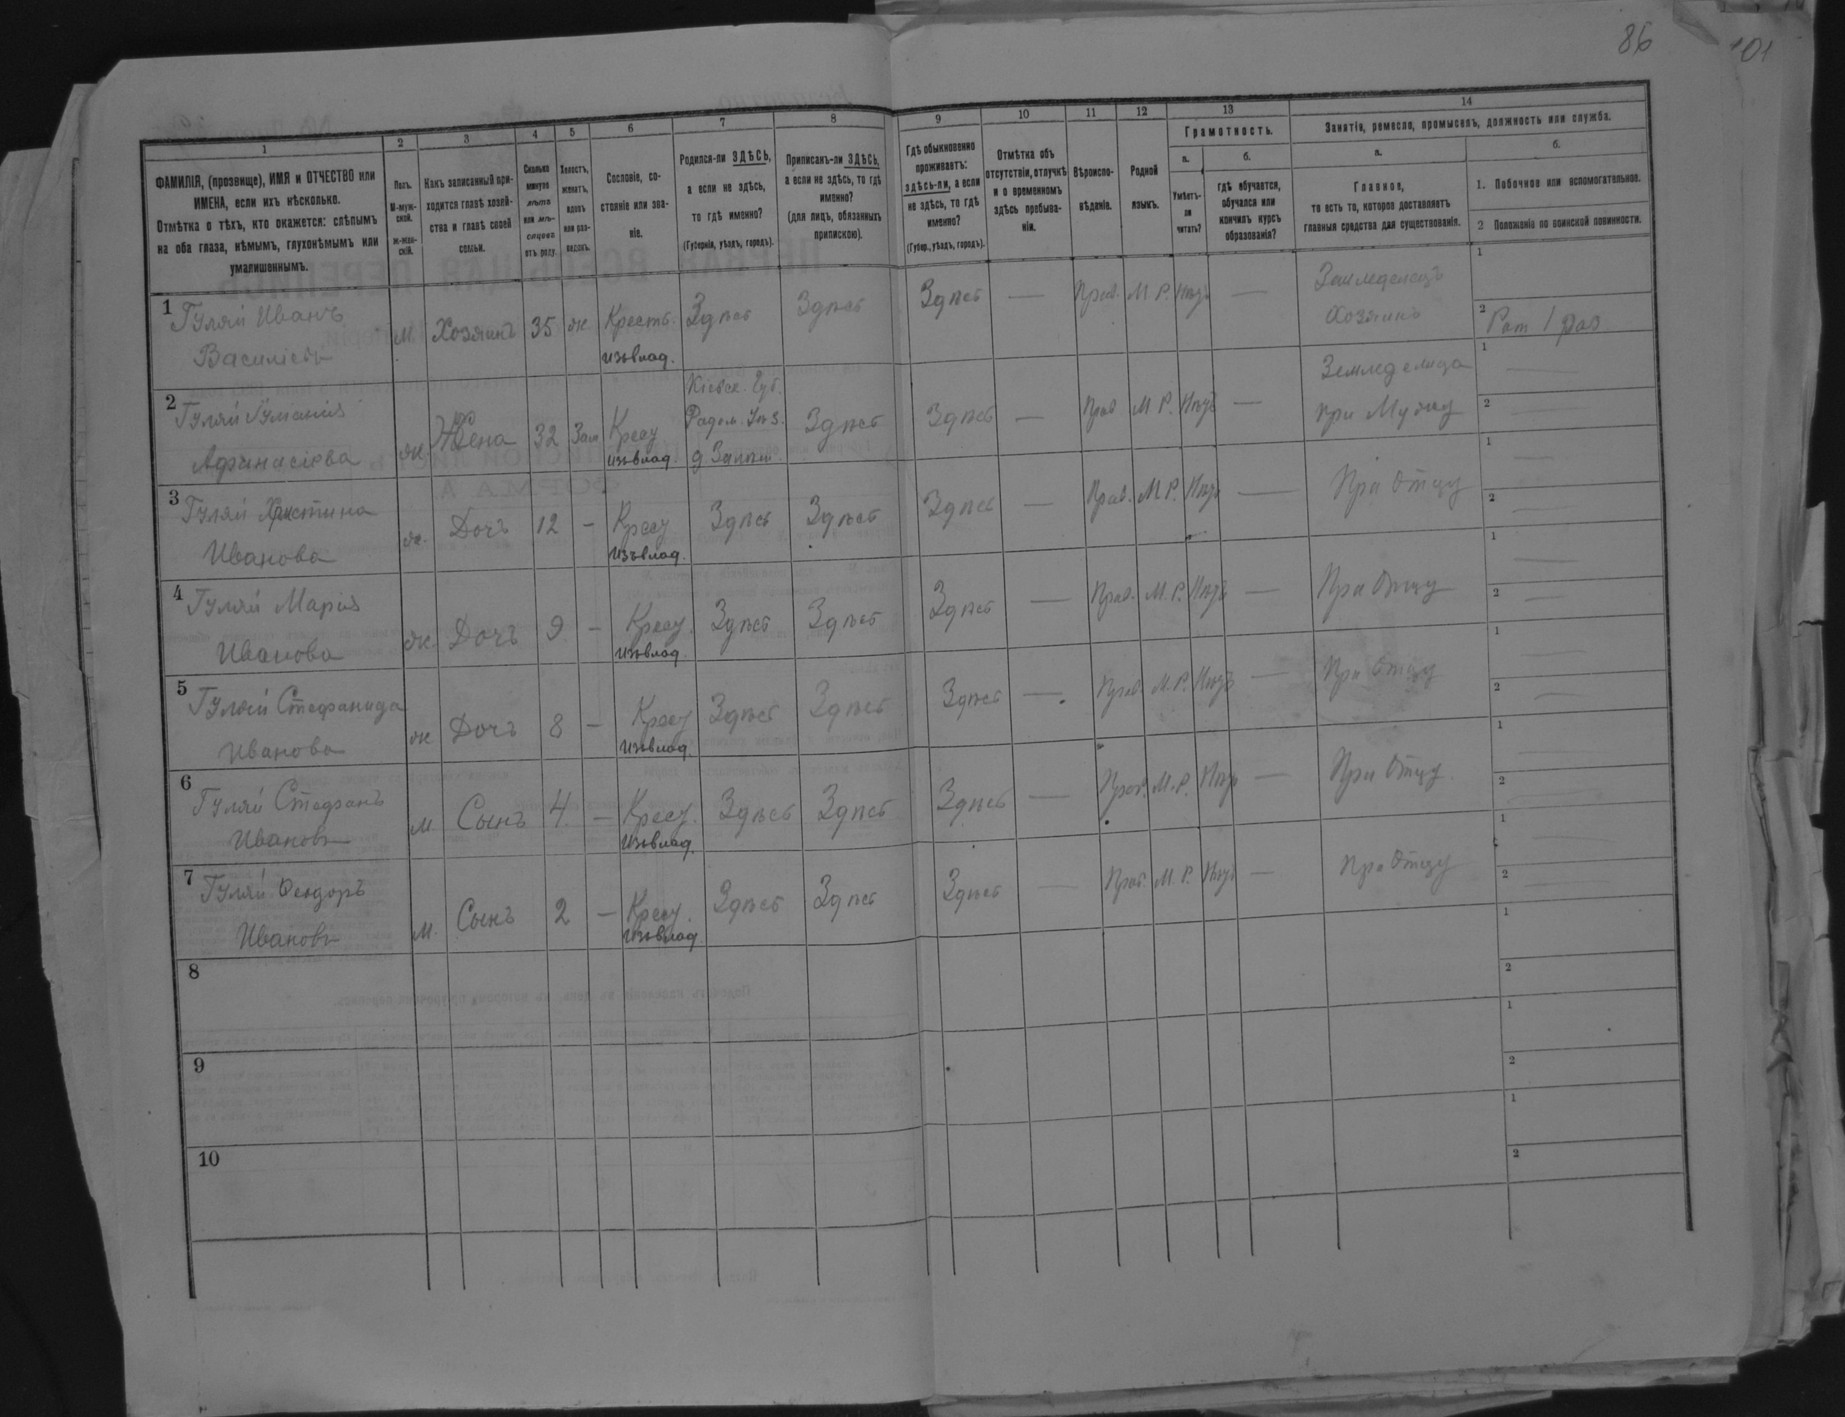 86
101
1
2
3
4
5
6
7
8
9
10
11
12
13
14
ФАМИЛІЯ, (прозвище), ИМЯ и ОТЧЕСТВО или
ИМЕНА, если ихъ нѣсколько.
Отмѣтка о тѣхъ, кто окажется: слѣпымъ
на оба глаза, нѣмымъ, глухонѣмымъ или
умалишеннымъ.
Полъ.
М-муж-
ской.
Ж-жен-
скій.
Какъ записанный при-
ходится главѣ хозяй-
ства и главѣ своей
семьи.
Сколько
минуло
лѣтъ
или мѣ-
сяцевъ
отъ роду.
Холостъ,
женатъ,
вдовъ
или раз-
веденъ.
Сословіе, со-
стояніе или зва-
ніе.
Родился-ли ЗДѢСЬ,
а если не здѣсь,
то гдѣ именно?
(Губернія, уѣздъ, городъ).
Приписанъ-ли ЗДѢСЬ,
а если не здѣсь, то гдѣ
именно?
(для лицъ, обязанныхъ
припискою).
Гдѣ обыкновенно
проживаетъ:
здѣсь-ли, а если
не здѣсь, то гдѣ
именно?
(Губер., уѣздъ, городъ).
Отмѣтка объ
отсутствіи, отлучкѣ
и о временномъ
здѣсь пребыва-
ніи.
Вѣроиспо-
вѣданіе.
Родной
языкъ.
Грамотность.
а.
Умѣетъ-
ли
читать?
б.
гдѣ обучается,
обучался или
кончилъ курсъ
образованія?
Занятіе, ремесло, промыселъ, должность или служба.
а.
Главное,
то есть то, которое доставляетъ
главныя средства для существованія.
б.
1. Побочное или вспомогательное.
2 Положеніе по воинской повинности.
1 Гуляй Иванъ
Василіевъ
м. Хозяинъ 35 ж Крестъ.
изъ влад.
Здѣсь Здѣсь Здѣсь — Прав. М. Р. Нѣтъ —
Хозяинъ
1
2 Рат 1 раз
2 Гуляй
Афанасіева
ж. Жена 32 Зам Кресу
изъ влад.
Кіевск. Губ.
Радом. Уѣз.
Здѣсь Здѣсь — Прав М. Р. Нѣтъ —
при Мужу
1 —
2 —
3 Гуляй Христина
Иванова
ж. Дочь 12 — Кресу
изъ влад.
Здѣсь Здѣсь Здѣсь — Прав. М. Р. Нѣтъ — При Отцу
1 —
2 —
4 Гуляй Марія
Иванова
ж. Дочь 9 — Кресу.
изъ влад.
Здѣсь Здѣсь Здѣсь — Прав. М. Р. Нѣтъ — При Отцу
1 —
2 —
5 Гуляй Стефанида
Иванова
ж Дочь 8 — Кресу
изъ влад.
Здѣсь Здѣсь Здѣсь — Прав. М. Р. Нѣтъ — При Отцу
1 —
2 —
6 Гуляй Стефанъ
Ивановъ
м Сынъ 4. — Кресу.
изъ влад.
Здѣсь Здѣсь Здѣсь — Прав. М. Р. Нѣтъ — При Отцу.
1 —
2 —
7 Гуляй Феодоръ
Ивановъ
м. Сынъ 2 — Кресу.
изъ влад
Здѣсь Здѣсь Здѣсь — Прав. М. Р. Нѣтъ — При Отцу
1 —
2 —
8
1
2
9
1
2
10
1
2